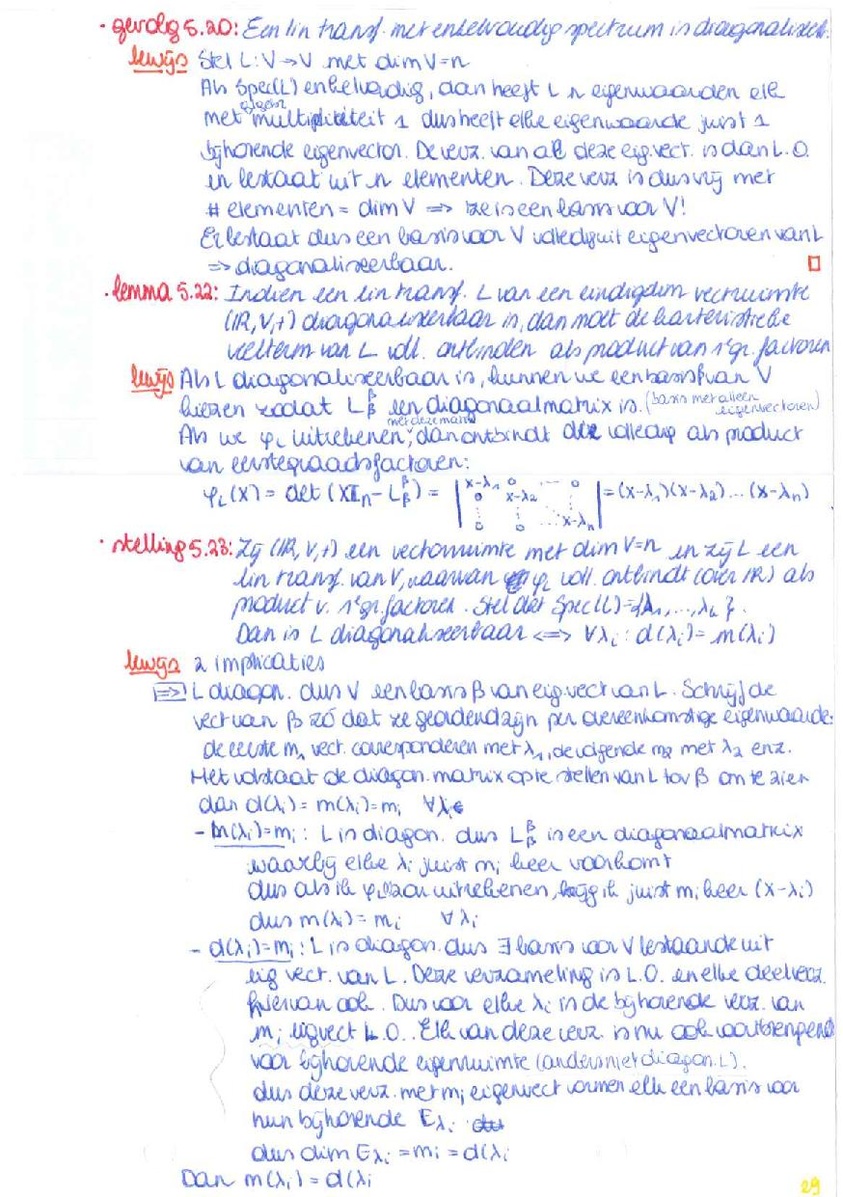 · gevolg 5.20: Een lin transf. met enkelvoudig spectrum is diagonaliseerb.
bewijs Stel L: V→V met dim V=n
Als Spec(L) enkelvoudig, dan heeft L n eigenwaarden elk
met multipliciteit 1 dus heeft elke eigenwaarde juist 1
bijhorende eigenvector. De verz. van al deze eig.vect. is dan L.O.
en bestaat uit n elementen. Deze verz is dus vrij met
# elementen = dim V ⟹ ze is een basis voor V!
Er bestaat dus een basis voor V volledig uit eigenvectoren van L
⟹ diagonaliseerbaar. □
· lemma 5.22: Indien een lin transf. L van een eindigdim vectruimte
(ℝ,V,+) diagonaliseerbaar is, dan moet de karteristieke
veelterm van L voll. ontbinden als product van 1ᵉgr. factoren
bewijs Als L diagonaliseerbaar is, kunnen we een basis β van V
kiezen zodat L_β^β een diagonaalmatrix is. (basis met alleen eigenvectoren)
Als we φ_L uitrekenen met deze matrix, dan ontbindt deze volledig als product
van eerstegraadsfactoren:
φ_L(x) = det (xI_n - L_β^β) = | x-λ_1 0 ... 0 0 x-λ_2 ⋮ ⋮ ⋮ 0 0 ... x-λ_n | = (x-λ_1)(x-λ_2)...(x-λ_n)
· stelling 5.23: Zij (ℝ,V,+) een vectorruimte met dim V=n en zij L een
lin transf. van V, waarvan φ_L voll. ontbindt (over ℝ) als
product v. 1ᵉgr. factoren. Stel dat Spec(L)={λ_1,...,λ_k}.
Dan is L diagonaliseerbaar ⟺ ∀λ_i: d(λ_i)= m(λ_i)
bewijs 2 implicaties
⟹ L diagon. dus V een basis β van eig.vect van L. Schrijf de
vect van β zó dat ze geordend zijn per overeenkomstige eigenwaarde:
de eerste m_1 vect. corresponderen met λ_1, de volgende m_2 met λ_2 enz.
Het volstaat de diagon. matrix op te stellen van L tov β om te zien
dan d(λ_i) = m(λ_i)=m_i ∀λ_i
- m(λ_i)=m_i: L is diagon. dus L_β^β is een diagonaalmatrix
waarbij elke λ_i juist m_i keer voorkomt
dus als ik φ_L zou uitrekenen, krijg ik juist m_i keer (x-λ_i)
dus m(λ_i)= m_i ∀λ_i
- d(λ_i)=m_i: L is diagon. dus ∃ basis voor V bestaande uit
eig vect. van L. Deze verzameling is L.O. en elke deelverz.
hiervan ook. Dus voor elke λ_i is de bijhorende verz. van
m_i eigvect L.O.. Elk van deze verz. is nu ook voortbrengend
voor bijhorende eigenruimte (anders niet diagon. L).
dus deze verz. met m_i eigenvect vormen elk een basis voor
hun bijhorende E_λi.
dus dim E_λi = m_i = d(λ_i
Dan m(λ_i) = d(λ_i
29